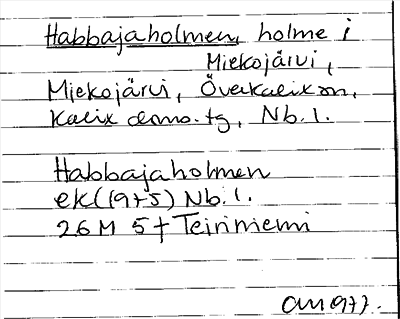 Habbajaholmen, holme i
Miekojärvi,
Miekojärvi, Överkalix sn,
Kalix doms.tg, Nb.l.
Habbajaholmen
ek (1975) Nb.l.
26M 5f Teiriniemi
1977.